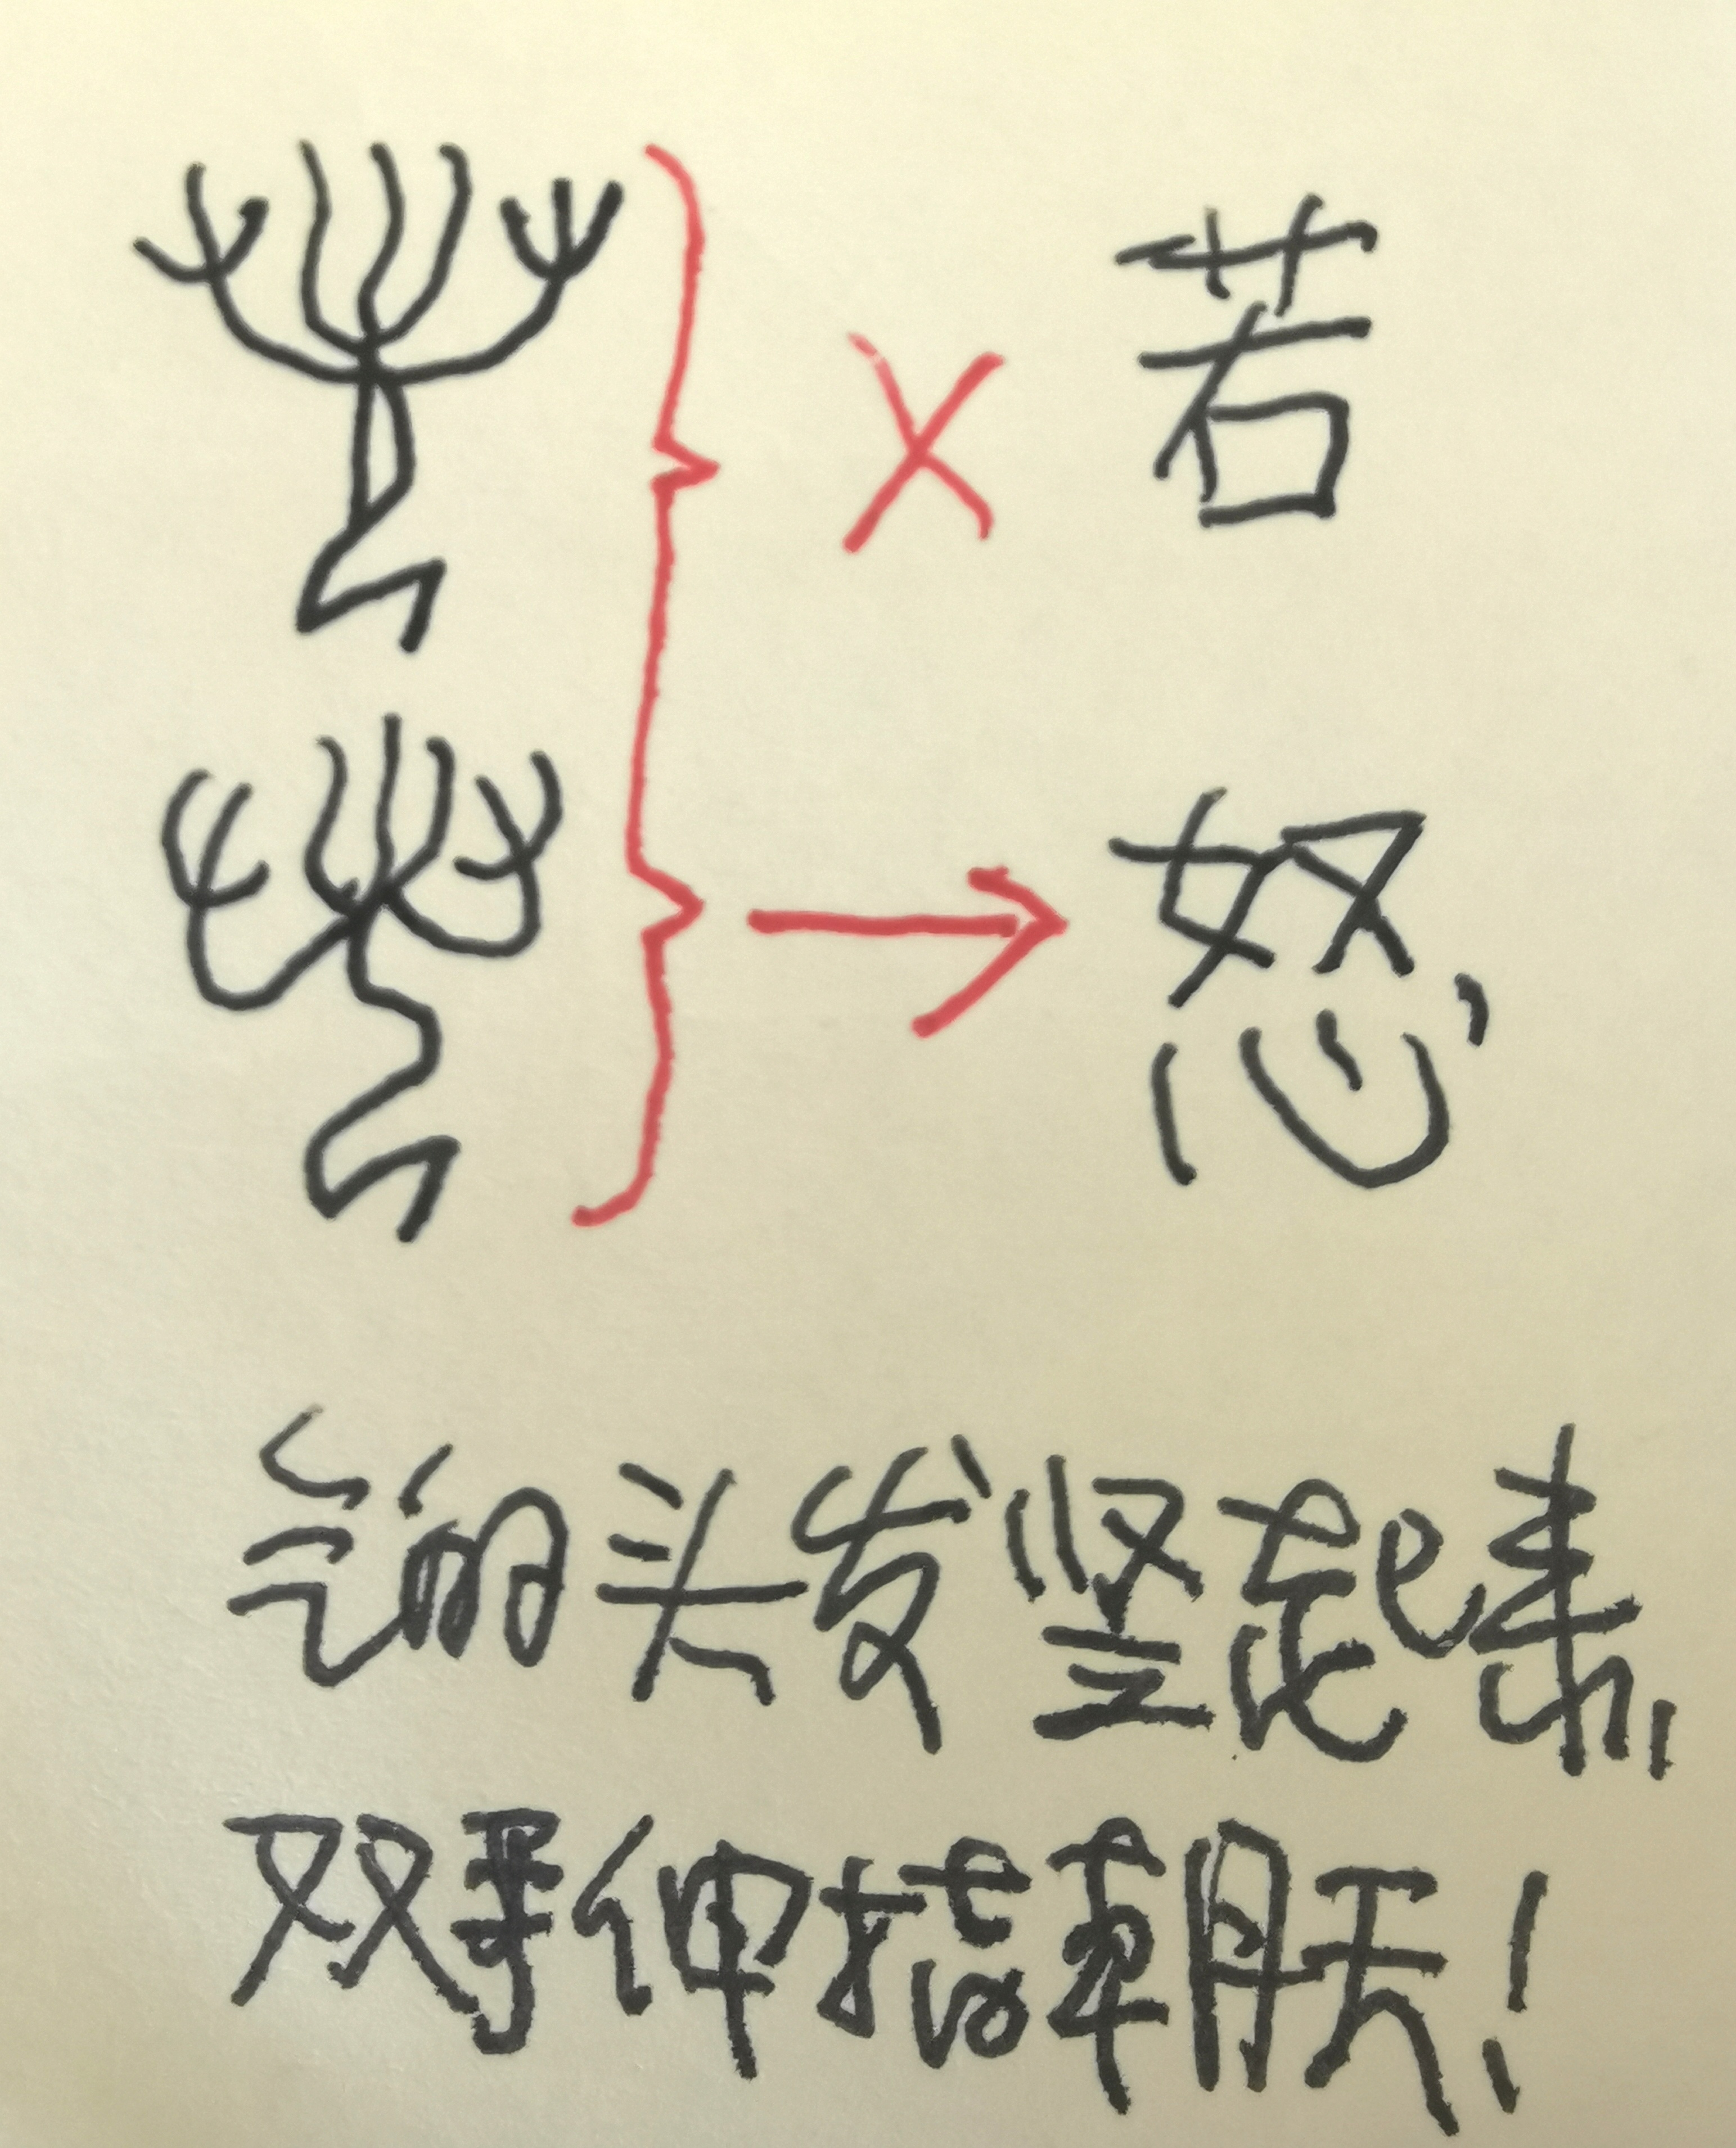 若
怒
气的头发竖起来,
双手伸搞朝天!